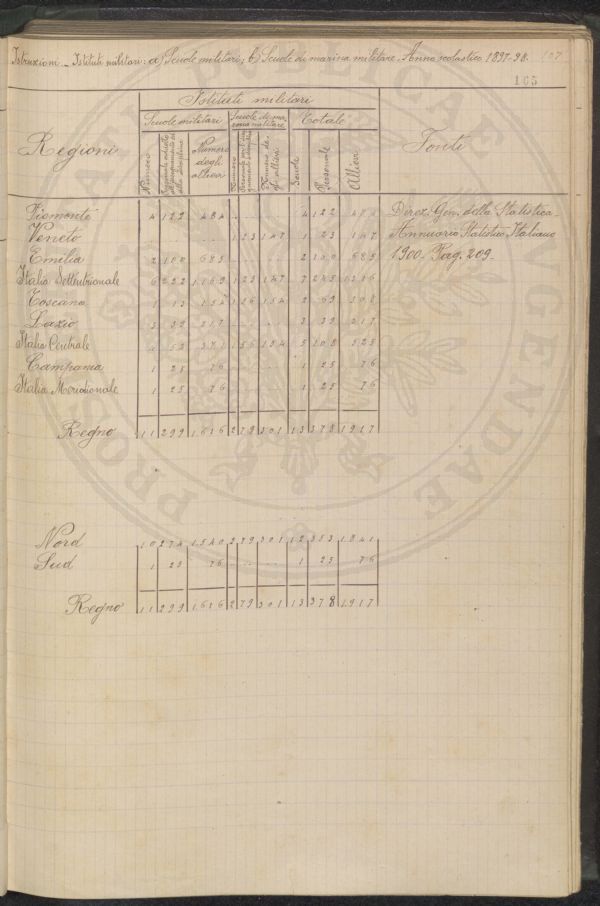 Istruzioni - Istituti militari: a) Scuole militari, b) Scuole di marina militare - Anno scolastico 1897-98. 107
105
Istituti militari
Scuole militari Scuole di marina militare Totale
Regioni Numero Numero degli allievi Numero Numero degli allievi Scuole Personale Allievi Fonti
Piemonte 4 122 484 4 122 484 Direz. Gen. della Statistica -
Veneto 1 23 147 1 23 147 Annuario Statistico Italiano
Emilia 2 100 685 2 100 685 1900 - Pag. 209 -
Italia Settentrionale 6 222 1169 1 23 147 7 245 1316
Toscana 1 13 154 1 56 154 2 69 308
Lazio 3 39 217 3 39 217
Italia Centrale 4 52 371 1 56 154 5 108 525
Campania 1 25 76 1 25 76
Italia Meridionale 1 25 76 1 25 76
Regno 11 299 1616 2 79 301 13 378 1917
Nord 10 274 1540 2 79 301 12 353 1841
Sud 1 25 76 1 25 76
Regno 11 299 1616 2 79 301 13 378 1917